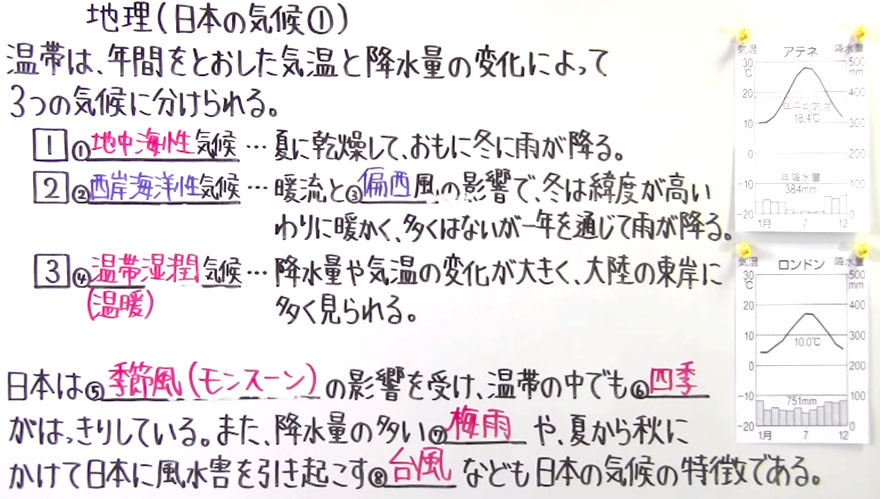 地理(日本の気候①)
温帯は、年間をとおした気温と降水量の変化によって
3つの気候に分けられる。
1 ①地中海性気候…夏に乾燥して、おもに冬に雨が降る。
2 ②西岸海洋性気候…暖流と③偏西風の影響で、冬は緯度が高い
わりに暖かく、多くはないが一年を通じて雨が降る。
3 ④温帯湿潤気候…降水量や気温の変化が大きく、大陸の東岸に
(温暖)
多く見られる。
日本は⑤季節風(モンスーン)の影響を受け、温帯の中でも⑥四季
がはっきりしている。また、降水量の多い⑦梅雨や、夏から秋に
かけて日本に風水害を引き起こす⑧台風なども日本の気候の特徴である。
気温 アテネ 降水量
30 500
℃ mm
20 400
年平均気温
18.4℃
10 300
0 200
-10 年降水量 100
384mm
-20 0
1月 7 12
気温 ロンドン 降水量
30 500
℃ mm
20 400
10 10.0℃ 300
0 200
-10 751mm 100
-20 0
1月 7 12